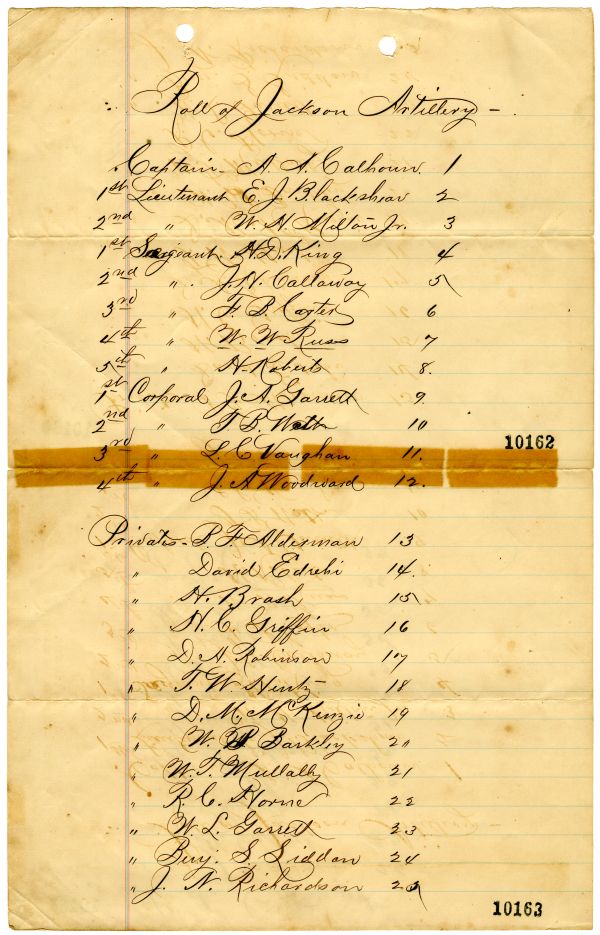 Roll of Jackson Artillery -
Captain - A. A. Calhoun. 1
1st Lieutenant E. J. Blackshear 2
2nd " W. N. Milton Jr. 3
1st Sergeant. H. D. King 4
2nd " J. N. Callaway 5
3rd " F. B. Carter 6
4th " W. W. Russ 7
5th " H. Roberts 8.
1st Corporal J. A. Garrett 9.
2nd " T. B. 10
10162
3rd " L. C Vaughan 11.
4th " J. A Woodward 12.
Privates - P. F. Alderman 13
" David Edrehi 14.
" H. Brash 15
" H. C. Griffin 16
" D. A. Robinson 17
" T. W. Hentz 18
" D. M. McKenzie 19
" W. Barkley 20
" W. T. Mullally 21
" R. C. Horne 22
" W. L. Garrett 23
" Benj. S. Liddon 24
" J. N. Richardson 25
10163